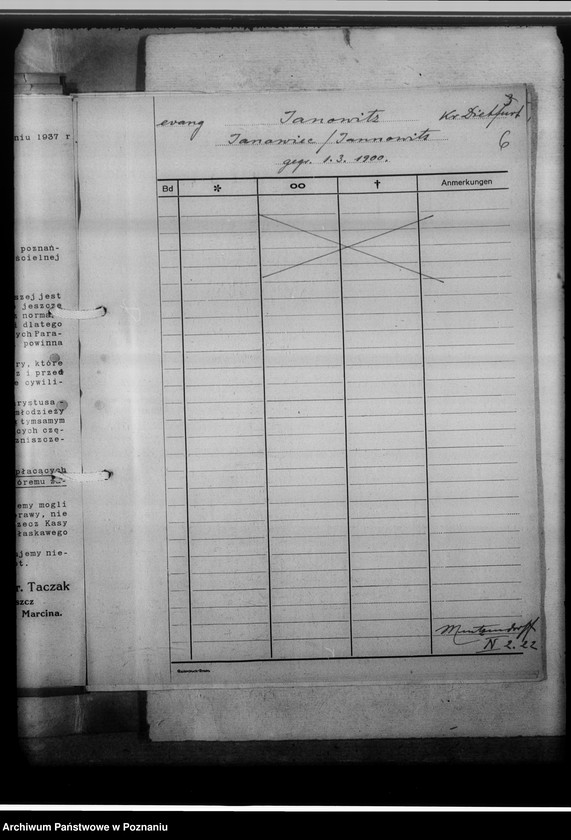 niu 1937 r
poznań-
ścielnej
szej jest
jeszcze
norma,
dlatego
ych Para-
powinna
ry, które
z i przed
e cywili-
rystusa-
młodzieży
tymsamym
cych czę-
zniszcze-
płacących
óremu
emy mogli
rawy, nie
rzecz Kasy
łaskawego
ujemy nie-
r. Taczak
szcz
Marcina.
3
evang Janowitz Kr. Dietfurt
Janowiec / Jannowitz 6
gegr. 1.3.1900.
Bd * oo † Anmerkungen
N 2.22
Archiwum Państwowe w Poznaniu